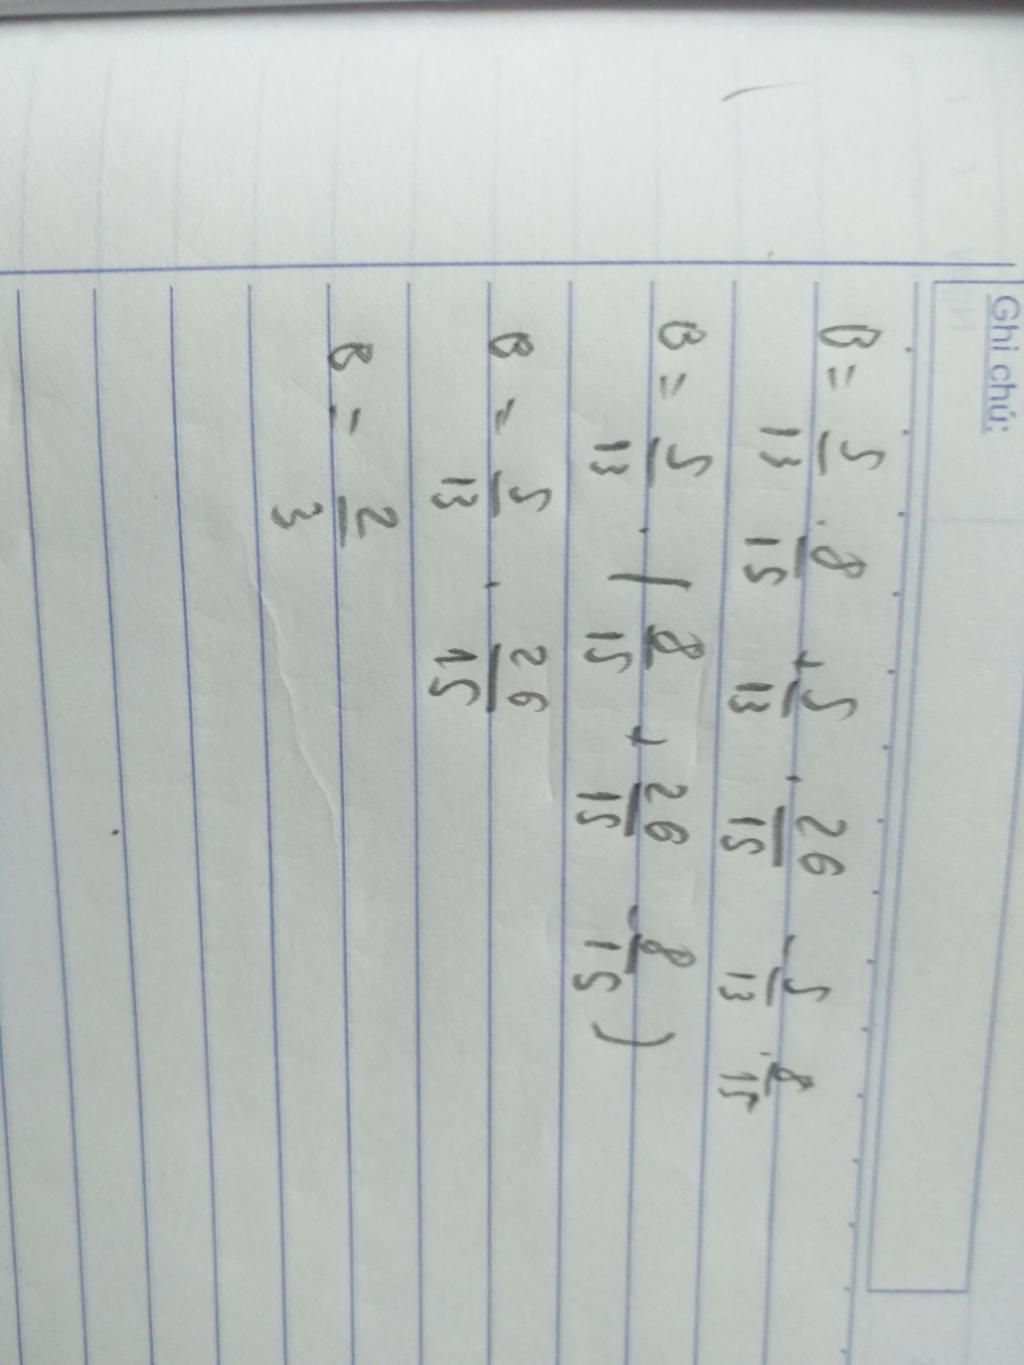 Ghi chú:
B = 5/13 . 8/15 + 5/13 . 26/15 - 5/13 . 8/15
B = 5/13 . ( 8/15 + 26/15 - 8/15 )
B = 5/13 . 26/15
B = 2/3